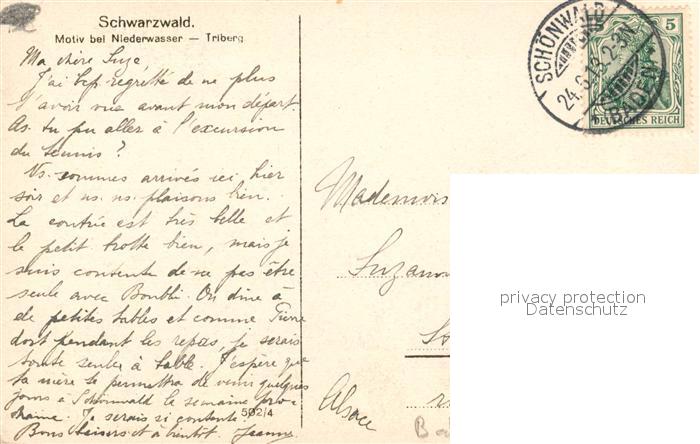 Schwarzwald.
Motiv bei Niederwasser — Triberg
Ma chère Suze,
J'ai bcp regretté de ne plus
t'avoir vue avant mon départ.
As-tu pu aller à l'excursion
du tennis ?
Ns. sommes arrivés ici hier
soir et ns. ns. plaisons bien.
La contrée est très belle et
le petit trotte bien, mais je
suis contente de ne pas être
seule avec Boubli. On dîne à
de petites tables et comme Pierre
dort pendant les repas, je serais
toute seule à table. J'espère que
ta mère te permettra de venir quelques
jours à Schönwald la semaine pro-
chaine. Je serais si contente.
Bons baisers et à bientôt. Jeanne
502/4
SCHÖNWALD
24.6.13.2-3N
BADEN
5
DEUTSCHES REICH
Mademois
Suzann
St
Alsace
privacy protection
Datenschutz